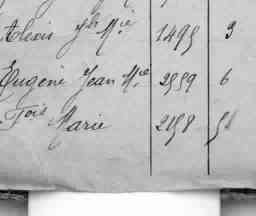 Alexis Jh Mie 1495 3
Eugène Jean Mie 2559 6
Fois Marie 2158